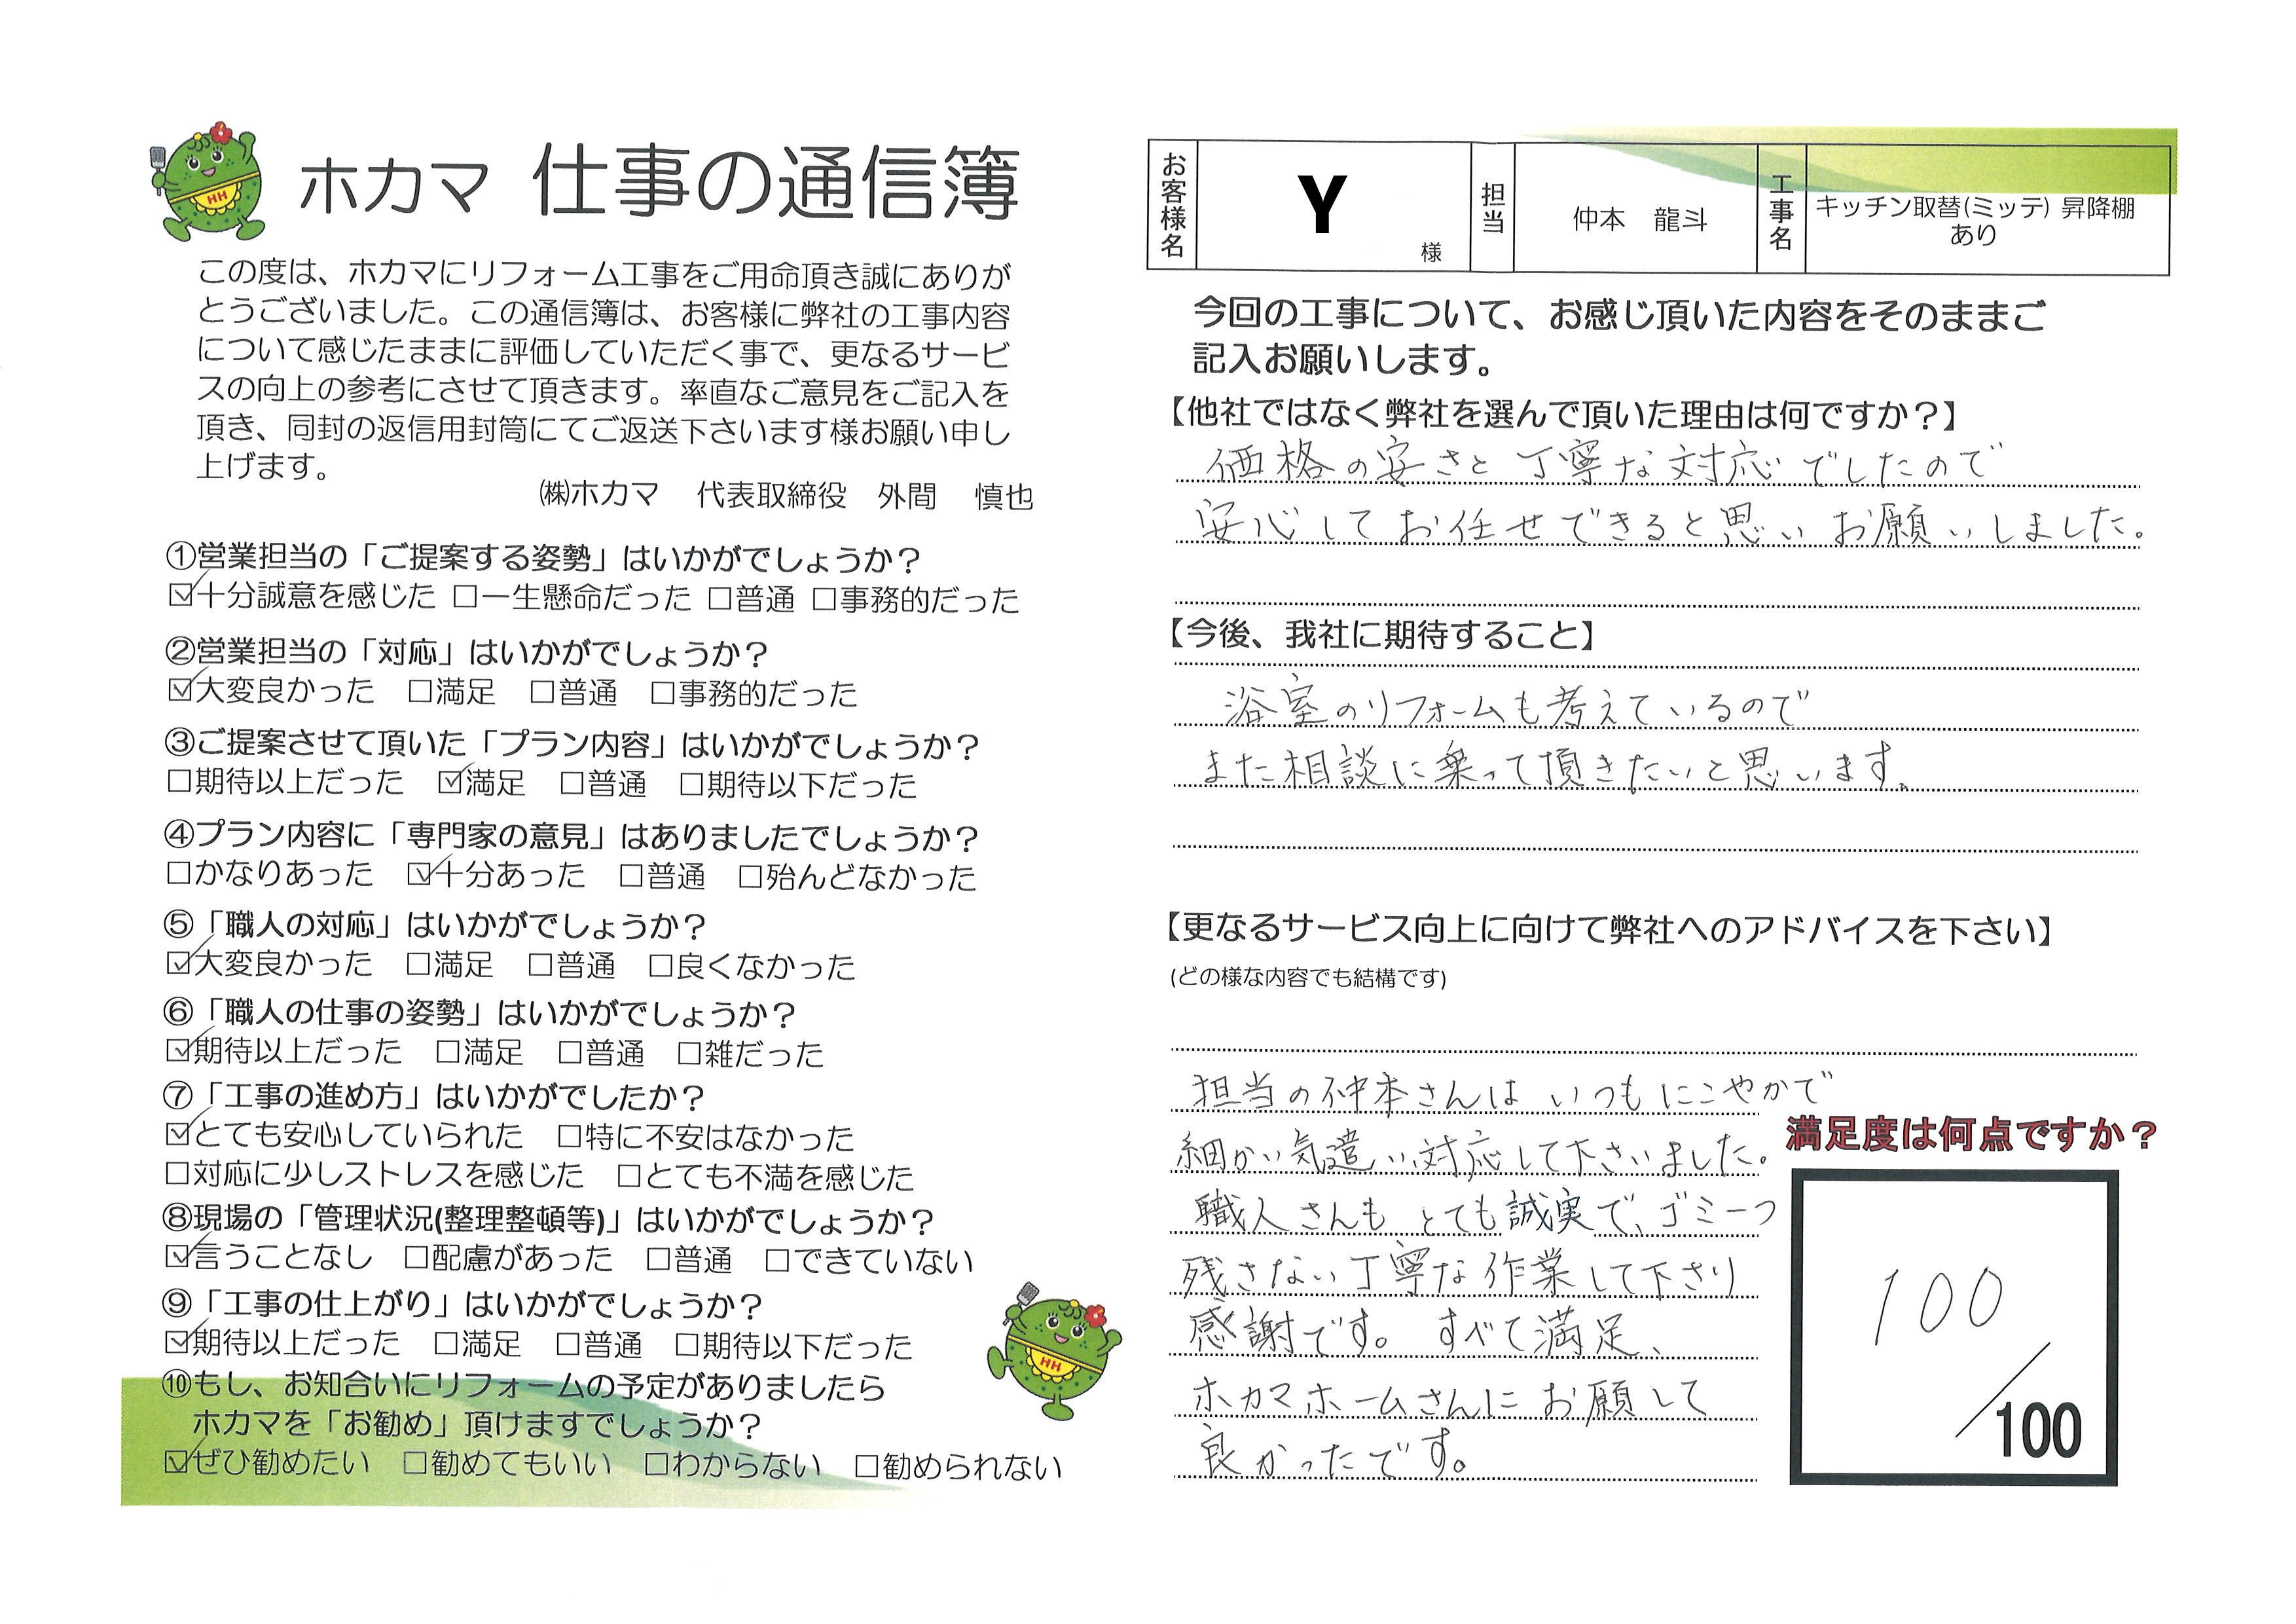 ホカマ 仕事の通信簿
この度は、ホカマにリフォーム工事をご用命頂き誠にありが
とうございました。この通信簿は、お客様に弊社の工事内容
について感じたままに評価していただく事で、更なるサービ
スの向上の参考にさせて頂きます。率直なご意見をご記入を
頂き、同封の返信用封筒にてご返送下さいます様お願い申し
上げます。
㈱ホカマ 代表取締役 外間 慎也
①営業担当の「ご提案する姿勢」はいかがでしょうか？
☑十分誠意を感じた □一生懸命だった □普通 □事務的だった
②営業担当の「対応」はいかがでしょうか？
☑大変良かった □満足 □普通 □事務的だった
③ご提案させて頂いた「プラン内容」はいかがでしょうか？
□期待以上だった ☑満足 □普通 □期待以下だった
④プラン内容に「専門家の意見」はありましたでしょうか？
□かなりあった ☑十分あった □普通 □殆んどなかった
⑤「職人の対応」はいかがでしょうか？
☑大変良かった □満足 □普通 □良くなかった
⑥「職人の仕事の姿勢」はいかがでしょうか？
☑期待以上だった □満足 □普通 □雑だった
⑦「工事の進め方」はいかがでしたか？
☑とても安心していられた □特に不安はなかった
□対応に少しストレスを感じた □とても不満を感じた
⑧現場の「管理状況(整理整頓等)」はいかがでしょうか？
☑言うことなし □配慮があった □普通 □できていない
⑨「工事の仕上がり」はいかがでしょうか？
☑期待以上だった □満足 □普通 □期待以下だった
⑩もし、お知合いにリフォームの予定がありましたら
ホカマを「お勧め」頂けますでしょうか？
☑ぜひ勧めたい □勧めてもいい □わからない □勧められない
HH
HH
お客様名 Y 様 担当 仲本 龍斗 工事名 キッチン取替(ミッテ) 昇降棚
あり
今回の工事について、お感じ頂いた内容をそのままご
記入お願いします。
【他社ではなく弊社を選んで頂いた理由は何ですか？】
価格の安さと丁寧な対応でしたので
安心してお任せできると思いお願いしました。
【今後、我社に期待すること】
浴室のリフォームも考えているので
また相談に乗って頂きたいと思います。
【更なるサービス向上に向けて弊社へのアドバイスを下さい】
(どの様な内容でも結構です)
担当の仲本さんは いつもにこやかで
細かい気遣い、対応して下さいました。
職人さんも とても誠実で、ゴミ一つ
残さない丁寧な作業して下さり
感謝です。 すべて満足、
ホカマホームさんに お願して
良かったです。
満足度は何点ですか？
100
/100